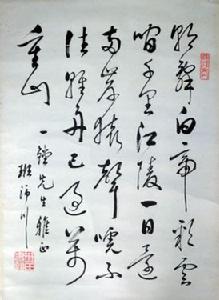 朝辭白帝彩雲
間千里江陵一日還
兩岸猿聲啼不
住輕舟已過萬
重山
先生雅正